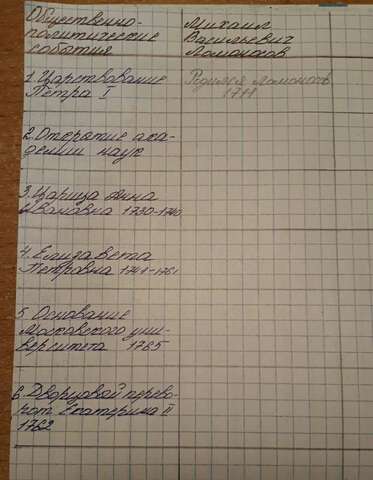 Общественно-
политические
события
Михаил
Васильевич
Ломоносов
1. Царствование
Петра I
Родился Ломоносов
1711
2. Открытие ака-
демии наук
3. Царица Анна
Ивановна 1730-1740
4. Елизавета
Петровна 1741-1761
5 Основание
Московского уни-
верситета 1755
6. Дворцовой перево-
рот. Екатерина II
1762